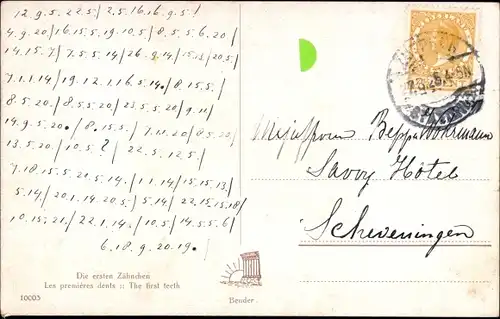 12.9.5. 22.5./ 2.5.16.16.9.5!
4.9.20/16.15.5.19.10.5/8.5.5.6.20/
14.15.7/7.5.5.14/26.9.14/15.13/20.5/
7.1.1.14/19.12.1.16.5.14./8.15.5/
8.5.20/8.5.5.20/23.5.5.20/9.11/
14.9.5.20./8.15.5/7.11.20/8.5.20/
13.5.20/10.5? / 22.5.12.5/
7.18.15.5.20.5.14/1.1.14/15.15.13/
5.14/20.1.14.20.5/5.14/22.15.15.18/
10.15.21/22.1.14./10.5/14.5.5.6/
6.18.9.20.19./
Mejuffrouw Beppa
Savoy Hôtel
Scheveningen
Die ersten Zähnchen
Les premières dents :: The first teeth
10003
Bender